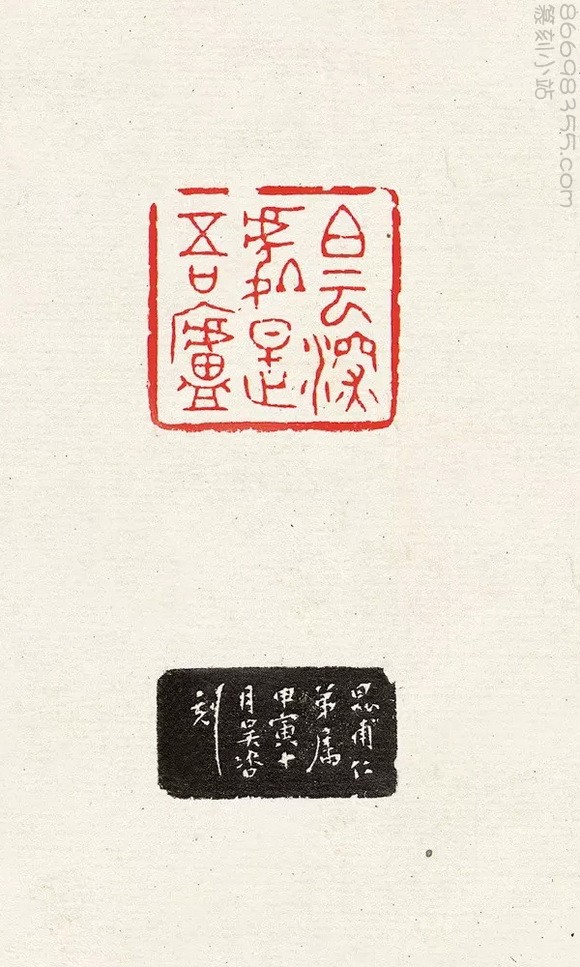 白云深
處是
吾廬
昷甫仁
弟属
甲寅十
月吴㴉
刻
86698355.com
篆刻小站